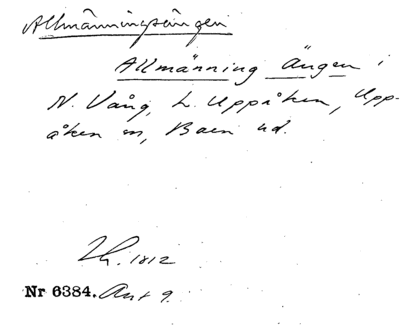 Allmänningsängen
Allmänning Ängen i
N. Vång, L. Uppåken, Upp-
åken m, Baen ud.
Lh. 1812
Nr 6384. Ant 9.